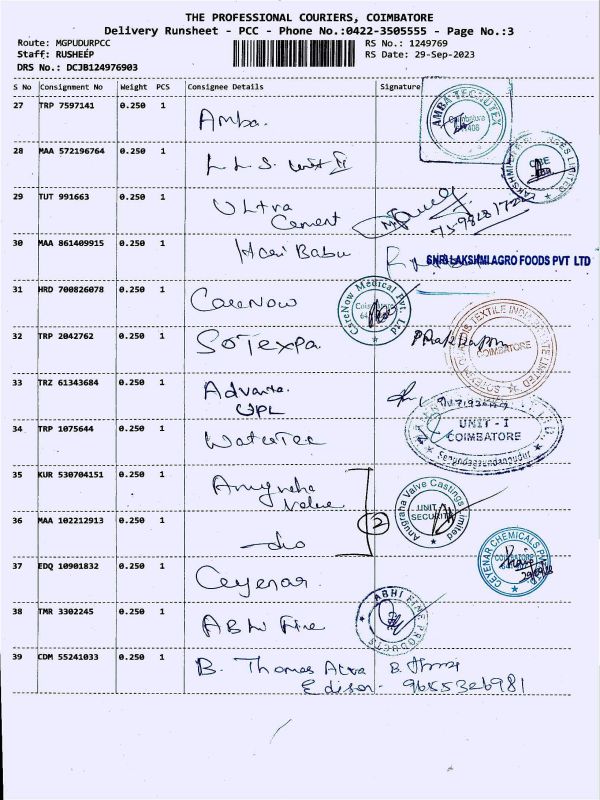 THE PROFESSIONAL COURIERS, COIMBATORE
Delivery Runsheet - PCC - Phone No.:0422-3505555 - Page No.:3
Route: MGPUDURPCC RS No.: 1249769
Staff: RUSHEEP RS Date: 29-Sep-2023
DRS No.: DCJB124976903
S No Consignment No Weight PCS Consignee Details Signature
27 TRP 7597141 0.250 1 Amba. AMBA TECHNOTEX Coimbatore
28 MAA 572196764 0.250 1 L L S. unit II CBE LIMITED
29 TUT 991663 0.250 1 Ultra
Cement
30 MAA 861409915 0.250 1 Hari Babu SHRI LAKSHMI AGRO FOODS PVT LTD
31 HRD 700826078 0.250 1 CareNow CareNow Medical Pvt. Ltd Coimbatore
32 TRP 2042762 0.250 1 SOTEXPA TEXTILE LIMITED COIMBATORE
33 TRZ 61343684 0.250 1 Advanta.
UPL
34 TRP 1075644 0.250 1 WaterTec UNIT - I
COIMBATORE
35 KUR 530704151 0.250 1 Anugraha
Valve Anugraha Valve Castings Limited UNIT SECURITY
36 MAA 102212913 0.250 1 -do 2
37 EDQ 10901832 0.250 1 Ceyenar CEYENAR CHEMICALS COIMBATORE
38 TMR 3302245 0.250 1 Abhi Fine ABHI FINE PRODUCTS
39 CDM 55241033 0.250 1 B. Thomas Alva
Edison. 9655326981